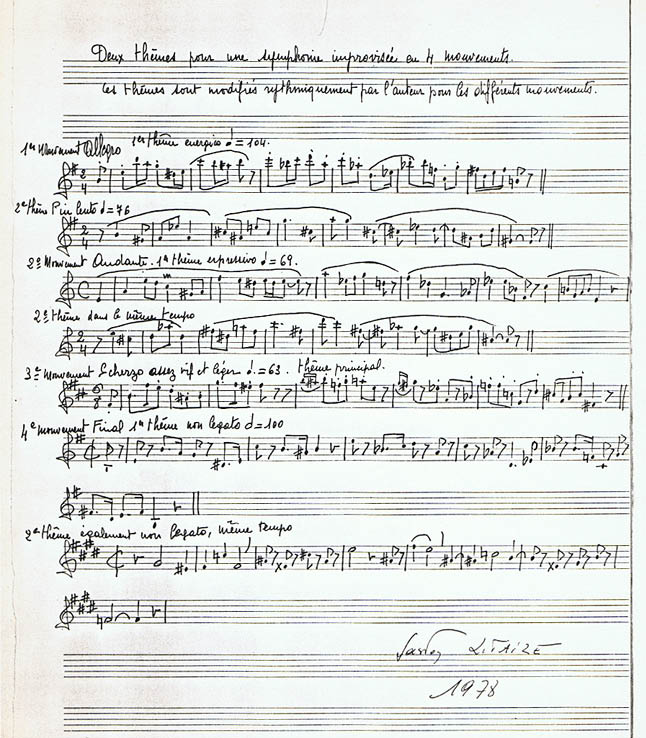 Deux thèmes pour une symphonie improvisée en 4 mouvements.
Les thèmes sont modifiés rythmiquement par l'auteur pour les différents mouvements.
1er Mouvement Allegro 1er thème energico = 104.
2e thème Più lento = 76
2e Mouvement Andante. 1er thème espressivo = 69.
2e thème dans le même tempo
3e Mouvement Scherzo assez vif et léger . = 63. thème principal.
4e mouvement Final 1er thème non legato = 100
2e thème également non legato, même tempo
Gaston LITAIZE
1978